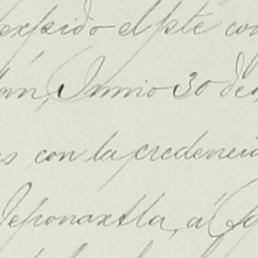 expido el pte co
ún, Junio 30 de
es con la credenci
Teponaxtla, á